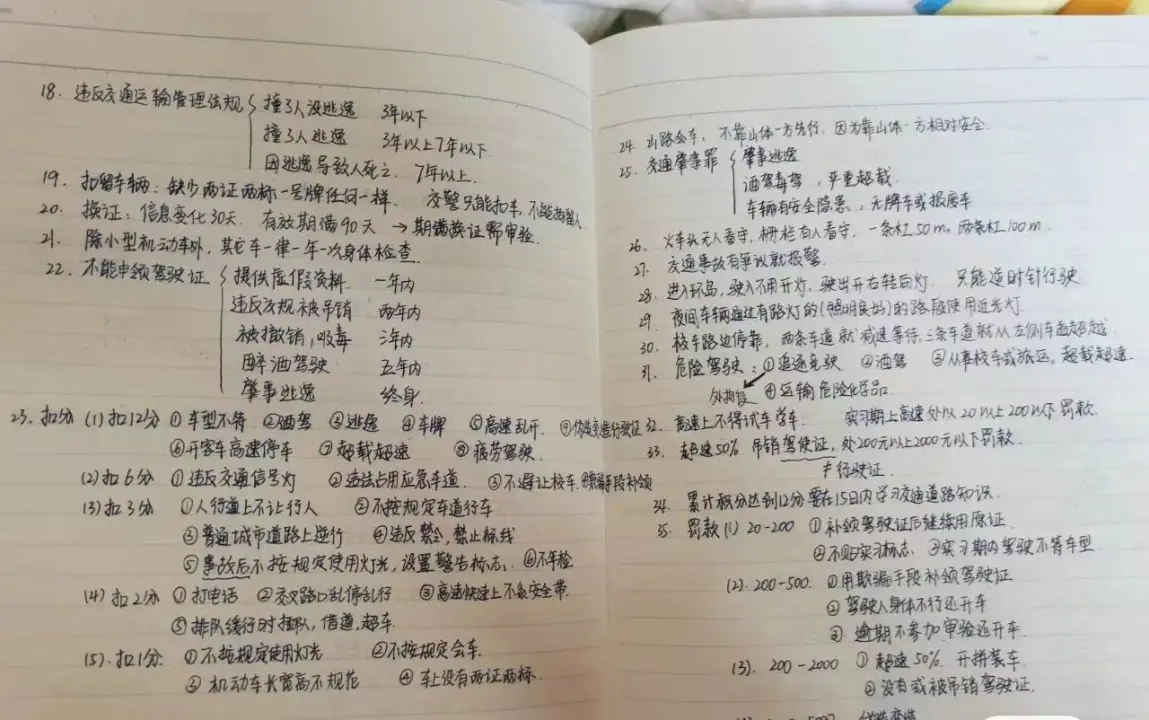 18. 违反交通运输管理法规 撞了人没逃逸 3年以下
撞了人逃逸 3年以上7年以下
因逃逸导致人死亡 7年以上.
19. 扣留车辆: 缺少两证两标一号牌任何一样. 交警只能扣车,不能扣留人
20. 换证: 信息变化30天. 有效期满90天 → 期满换证需审验.
21. 除小型机动车外,其它车一律一年一次身体检查.
22. 不能申领驾驶证 提供虚假资料 一年内
违反交规被吊销 两年内
被撤销,吸毒 三年内
醉酒驾驶 五年内
肇事逃逸 终身.
23. 扣分 (1) 扣12分 ① 车型不符 ②酒驾 ③逃逸 ④车牌 ⑤高速乱开.
⑥开客车高速停车 ⑦超载超速 ⑧疲劳驾驶.
(2) 扣6分 ①违反交通信号灯 ②违法占用应急车道. ③不避让校车. 手段补领
(3) 扣3分 ①人行道上不让行人 ②不按规定车道行车
③普通城市道路上逆行 ④违反禁令,禁止标线
⑤事故后不按规定使用灯光,设置警告标志. ⑥不年检
(4) 扣2分 ①打电话 ②交叉路口乱停乱行 ③高速快速上不系安全带.
⑤排队缓行时插队,借道,超车.
(5). 扣1分: ①不按规定使用灯光 ②不按规定会车.
③ 机动车长宽高不规范 ④ 车上没有两证两标.
24. 山路会车, 不靠山体一方先行. 因为靠山体一方相对安全.
25. 交通肇事罪 肇事逃逸
酒驾毒驾, 严重超载.
车辆有安全隐患, 无牌车或报废车
26. 火车头无人看守, 栅栏有人看守, 一条杠50m, 两条杠100m.
27. 交通事故有争议就报警.
28. 进入环岛, 驶入不用开灯, 驶出开右转向灯. 只能逆时针行驶
29. 夜间车辆通过有路灯的(照明良好)的路段使用近光灯.
30. 校车路边停靠, 两条车道就减速等待,三条车道就从左侧车道超越.
31. 危险驾驶: ①追逐竞驶 ②酒驾 ③从事校车或旅运, 超载超速.
④运输危险化学品.
32. 高速上不得试车学车. 实习期上高速处以20以上200以下罚款.
33. 超速50% 吊销驾驶证, 处200元以上2000元以下罚款.
≠行驶证.
34. 累计积分达到12分要在15日内学习交通道路知识.
35. 罚款 (1) 20-200 ①补领驾驶证后继续用原证.
②不贴实习标志. ③实习期内驾驶不符车型.
(2). 200-500. ①用欺骗手段补领驾驶证
② 驾驶人身体不行还开车
③. 逾期不参加审验还开车.
(3). 200-2000 ① 超速50% 开拼装车.
② 没有或被吊销驾驶证.